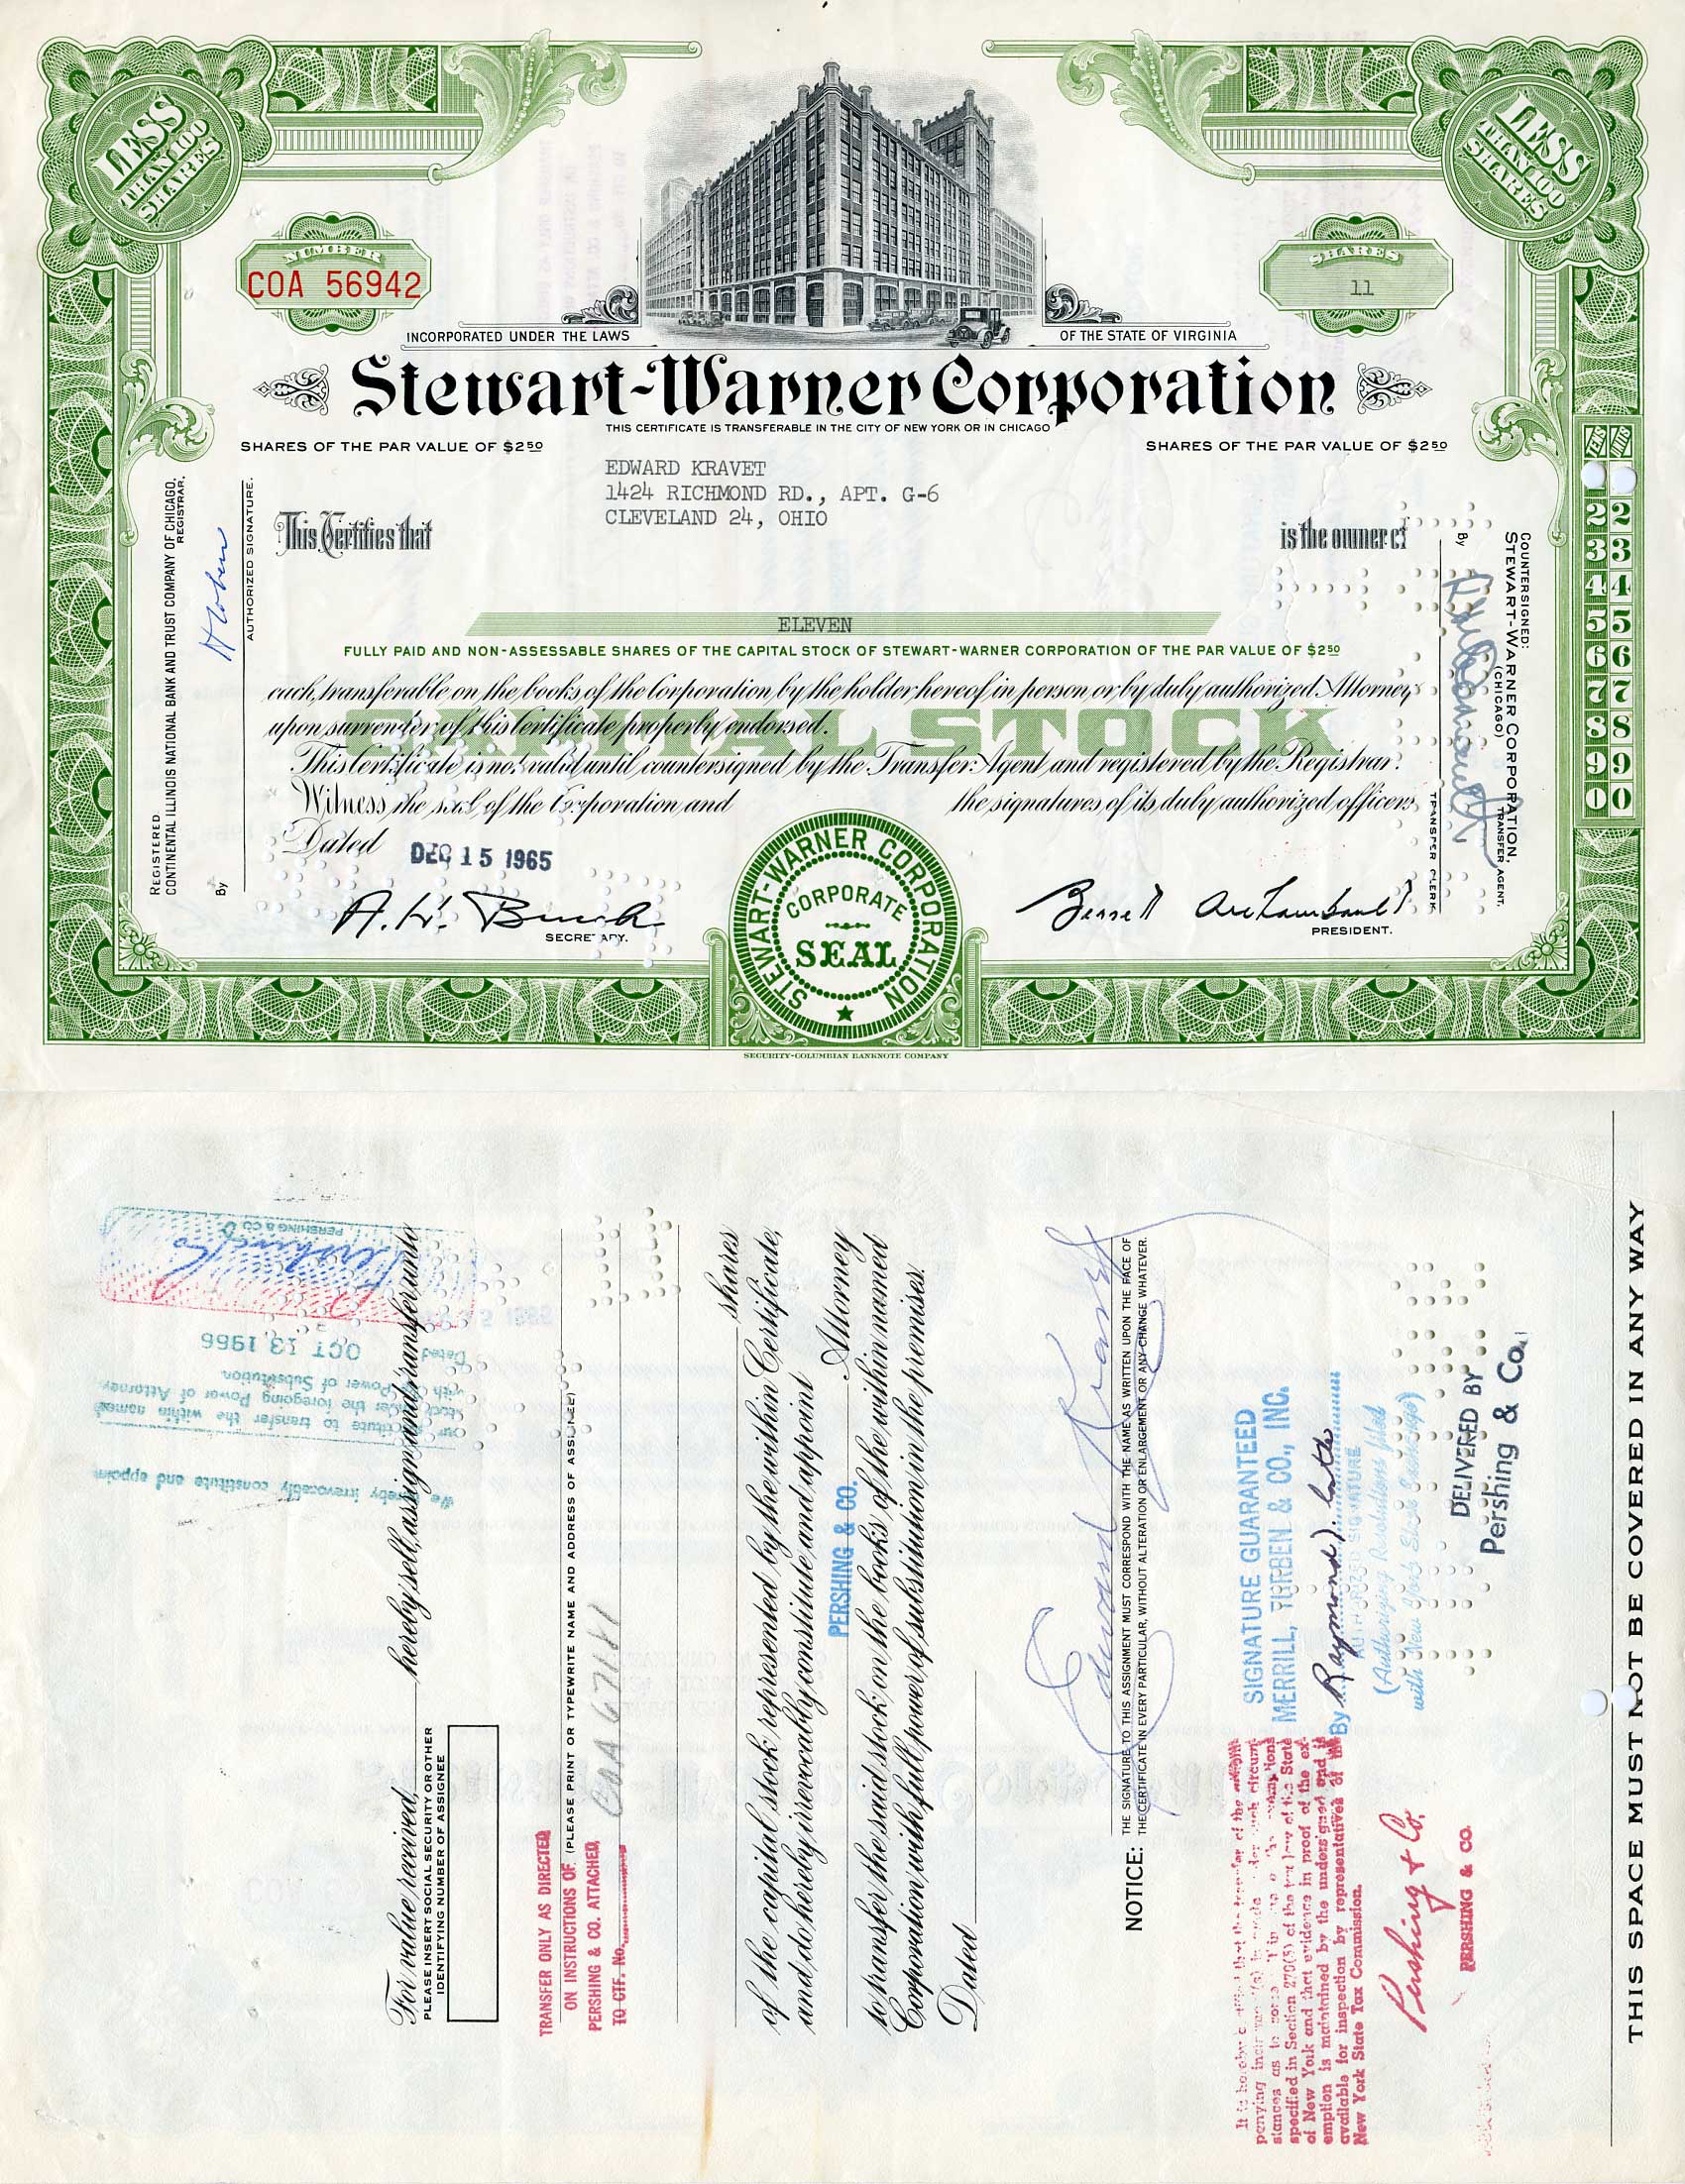 LESS
THAN 100
SHARES
LESS
THAN 100
SHARES
NUMBER
COA 56942
SHARES
11
INCORPORATED UNDER THE LAWS
OF THE STATE OF VIRGINIA
Stewart-Warner Corporation
THIS CERTIFICATE IS TRANSFERABLE IN THE CITY OF NEW YORK OR IN CHICAGO
SHARES OF THE PAR VALUE OF $2 50
SHARES OF THE PAR VALUE OF $2 50
EDWARD KRAVET
1424 RICHMOND RD., APT. G-6
CLEVELAND 24, OHIO
This Certifies that
is the owner of
ELEVEN
FULLY PAID AND NON-ASSESSABLE SHARES OF THE CAPITAL STOCK OF STEWART-WARNER CORPORATION OF THE PAR VALUE OF $2 50
CAPITAL STOCK
each, transferable on the books of the Corporation by the holder hereof in person or by duly authorized Attorney
upon surrender of this Certificate properly endorsed.
This Certificate is not valid until countersigned by the Transfer Agent and registered by the Registrar.
Witness the seal of the Corporation and the signatures of its duly authorized officers.
Dated DEC 15 1965
SECRETARY.
PRESIDENT.
STEWART-WARNER CORPORATION
CORPORATE
SEAL
SECURITY-COLUMBIAN BANKNOTE COMPANY
REGISTERED
CONTINENTAL ILLINOIS NATIONAL BANK AND TRUST COMPANY OF CHICAGO,
REGISTRAR.
By
AUTHORIZED SIGNATURE.
COUNTERSIGNED:
STEWART-WARNER CORPORATION,
(CHICAGO) TRANSFER AGENT.
By
TRANSFER CLERK
TENS UNITS
2 2
3 3
4 4
5 5
6 6
7 7
8 8
9 9
0 0
We hereby irrevocably constitute and appoint
our substitute to transfer the within named
stock under the foregoing Power of Attorney
with Power of Substitution.
Dated OCT 13 1966
PERSHING & CO
For value received, hereby sell, assign and transfer unto
PLEASE INSERT SOCIAL SECURITY OR OTHER
IDENTIFYING NUMBER OF ASSIGNEE
TRANSFER ONLY AS DIRECTED
ON INSTRUCTIONS OF
PERSHING & CO. ATTACHED,
TO CTF. No.
(PLEASE PRINT OR TYPEWRITE NAME AND ADDRESS OF ASSIGNEE)
COA 67181
shares
of the capital stock represented by the within Certificate,
and do hereby irrevocably constitute and appoint
PERSHING & CO. Attorney
to transfer the said stock on the books of the within named
Corporation, with full power of substitution in the premises.
Dated
Edward Kravet
NOTICE: THE SIGNATURE TO THIS ASSIGNMENT MUST CORRESPOND WITH THE NAME AS WRITTEN UPON THE FACE OF
THE CERTIFICATE IN EVERY PARTICULAR, WITHOUT ALTERATION OR ENLARGEMENT OR ANY CHANGE WHATEVER.
SIGNATURE GUARANTEED
MERRILL, TURBEN & CO., INC.
By Raymond J.
AUTHORIZED SIGNATURE
(Authorizing Resolutions filed
with New York Stock Exchange)
DELIVERED BY
Pershing & Co.
specified in Section 270(5) of the tax law of the State
of New York and that evidence in proof of the ex-
emption is maintained by the undersigned and is
available for inspection by representatives of the
New York State Tax Commission.
Pershing & Co.
PERSHING & CO.
THIS SPACE MUST NOT BE COVERED IN ANY WAY